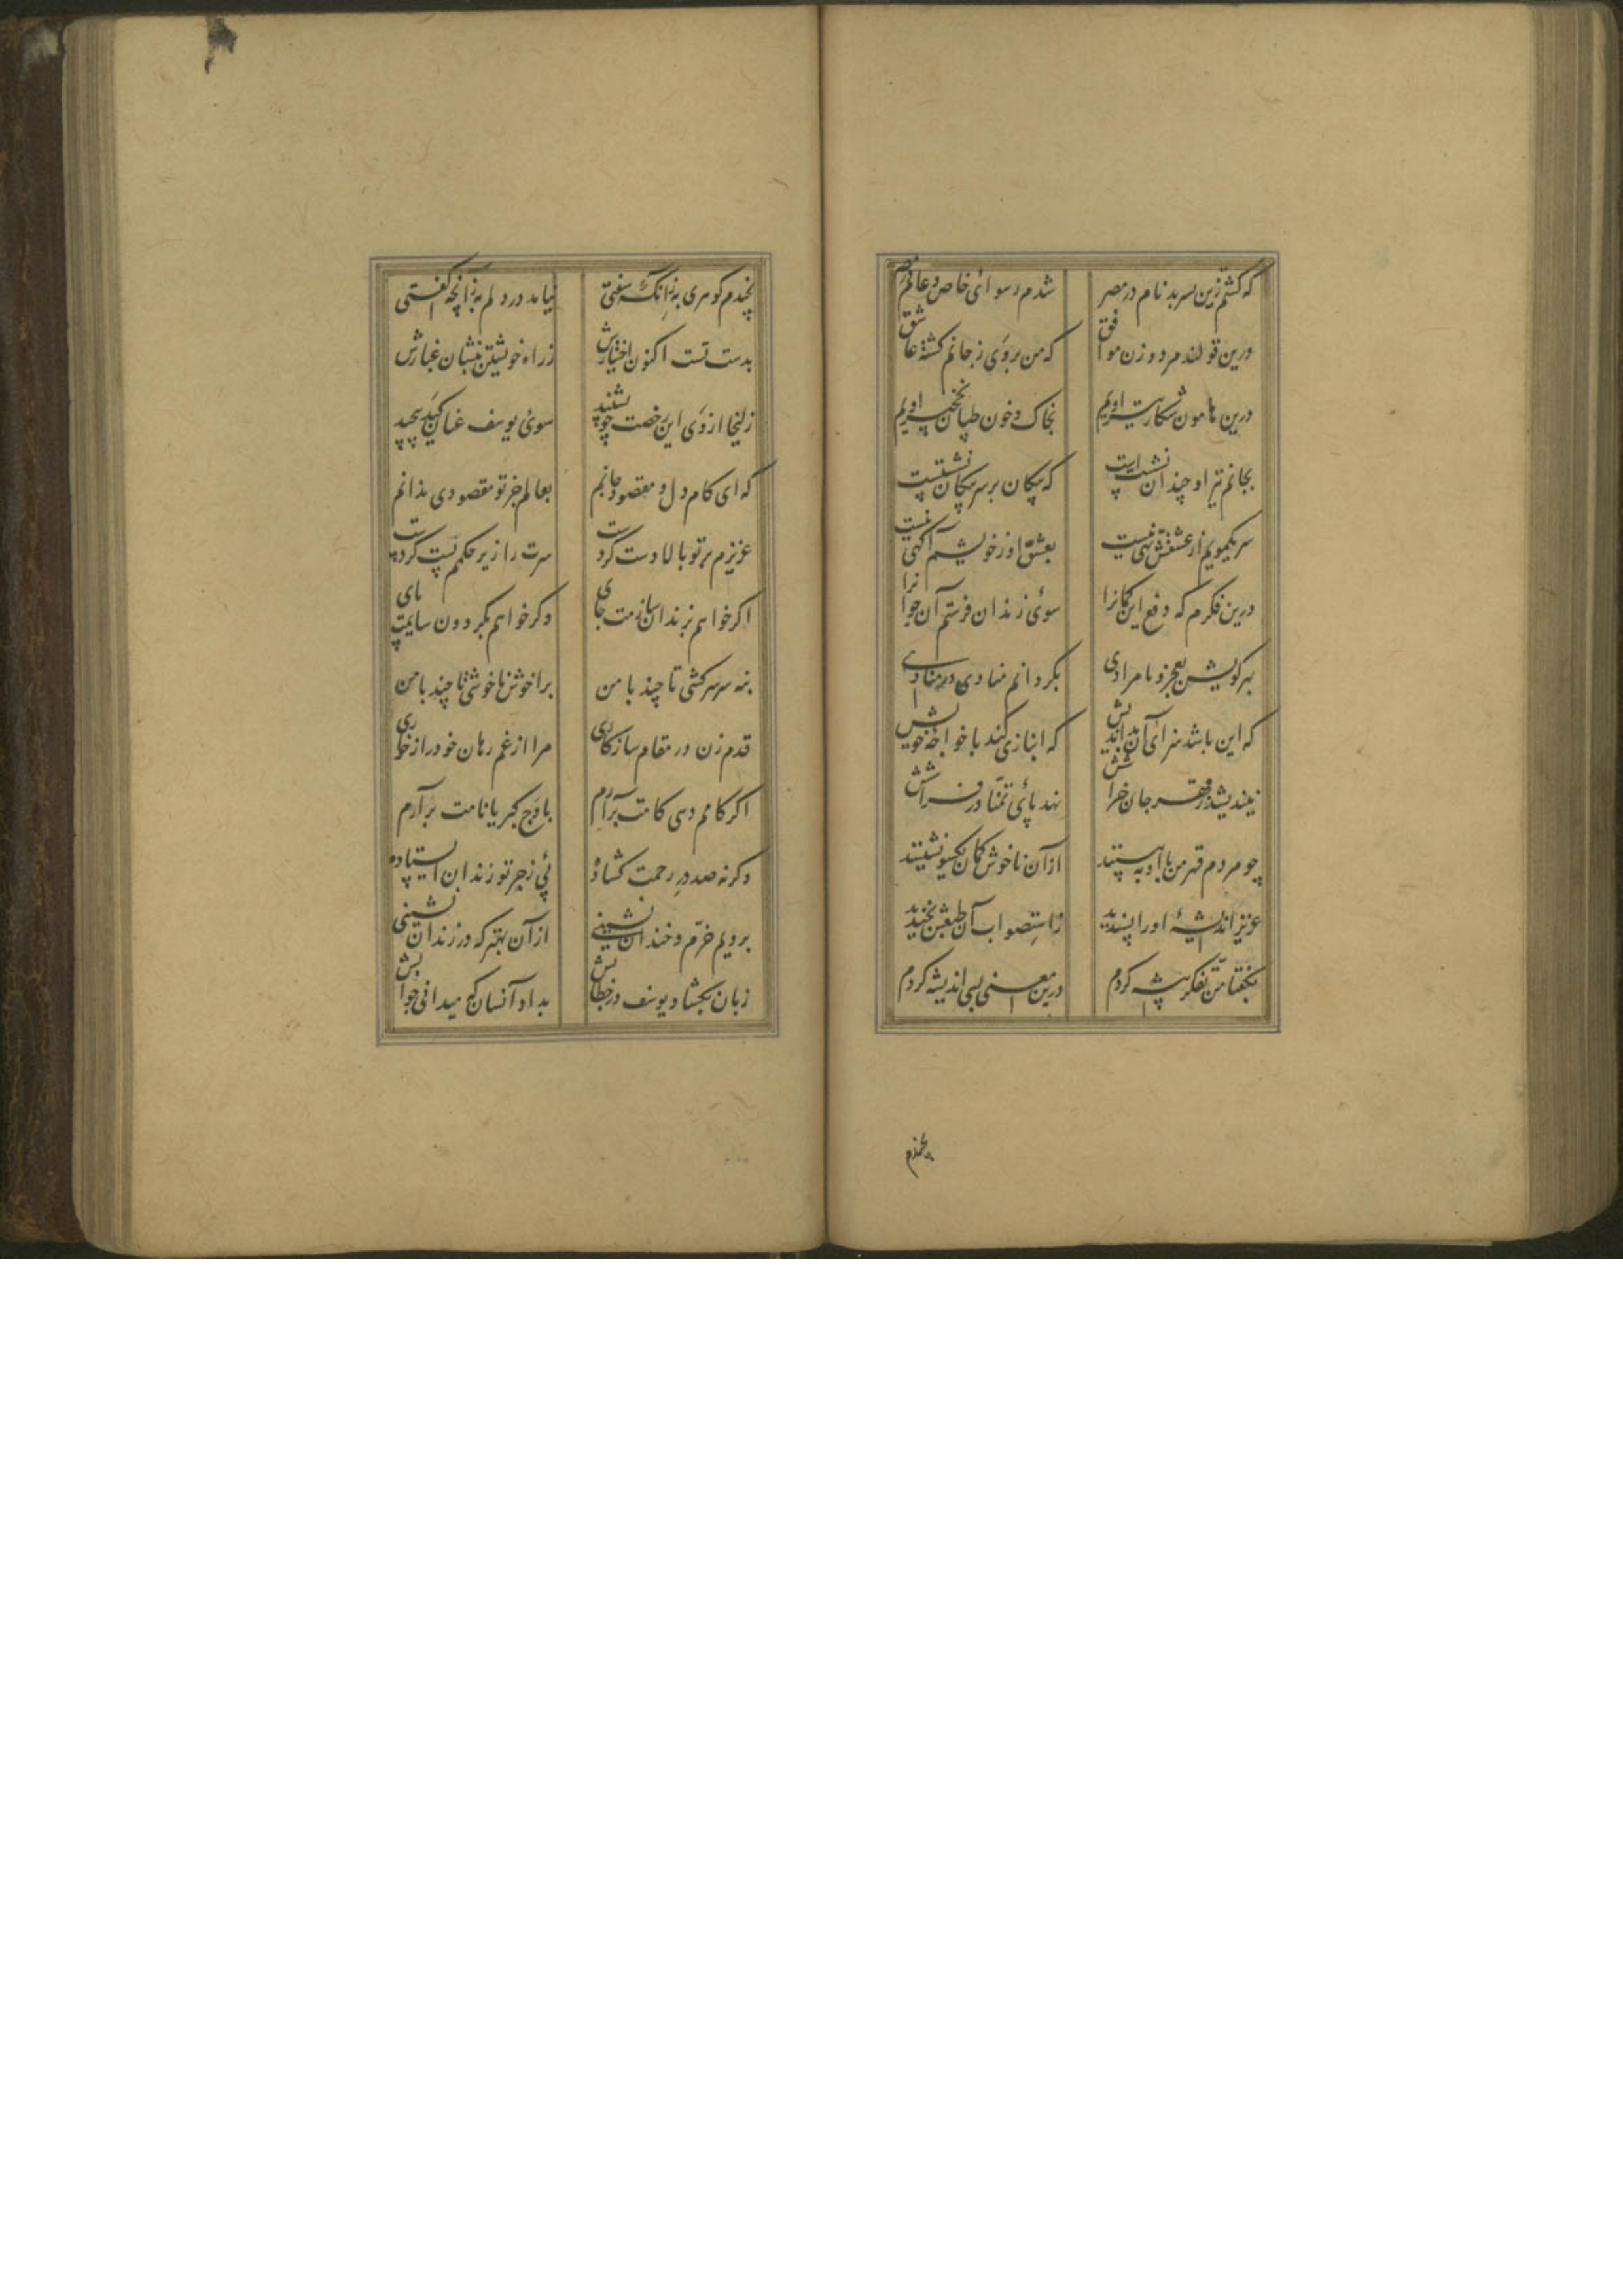 که کشتم زین پسر بدنام در مصر شدم رسوائی خاص و عام در مصر
درین قولند مرد و زن موافق که من بر وی ز جانم کشته عاشق
درین هامون شکار تیر اویم بخاک و خون طپان نخچیر اویم
بجانم تیر او چندان نشستست که پیکان بر سر پیکان نشستست
سر یکمویم از عشقش تهی نیست بعشق او ز خویشم آکهی نیست
درین فکرم که دفع این کمانرا سوئی زندان فرستم آن جوانرا
بهر کویش بعجز و نامرادی بکردانم منادی در منادی
که این باشد سزائی آن بداندیش که انبازی کند با خواجه خویش
نیندیشد ز قهر جان خراشش نهد پائی تمنا در فراشش
چو مردم قهر من با او به بینند از آن ناخوش کمان یکسو نشینند
عزیز اندیشۀ او را پسندید ز استصواب آن طبعش بخندید
بکفتا من تفکر پیشه کردم درین معنی بسی اندیشه کردم
بچندم
بچندم کوهری به زانکه سفتی نیامد در دلم به زانچه کفتی
بدست تست اکنون اختیارش ز راه خویشتن بنشان غبارش
زلیخا از وی این رخصت چو بشنید سوئی یوسف عنان کید پیچید
که ای کام دل و مقصود جانم بعالم جز تو مقصودی ندانم
عزیزم بر تو بالادست کردست سرت را زیر حکمم پست کردست
اکر خواهم بزندان سازمت جای وکر خواهم بکردون سایمت پای
بنه سر سرکشی تا چند با من برا خوش ناخوشی تا چند با من
قدم زن در مقام سازکاری مرا از غم رهان خود را ز خواری
اکر کامم دهی کامت برآرم باوج کبریا نامت برآرم
وکرنه صد در رحمت کشاده پئی زجر تو زندان ایستاده
برویم خرم و خندان نشینی از آن بهتر که در زندان نشینی
زبان بکشاد یوسف در خطابش بداد آنسان که میدانی جوابش